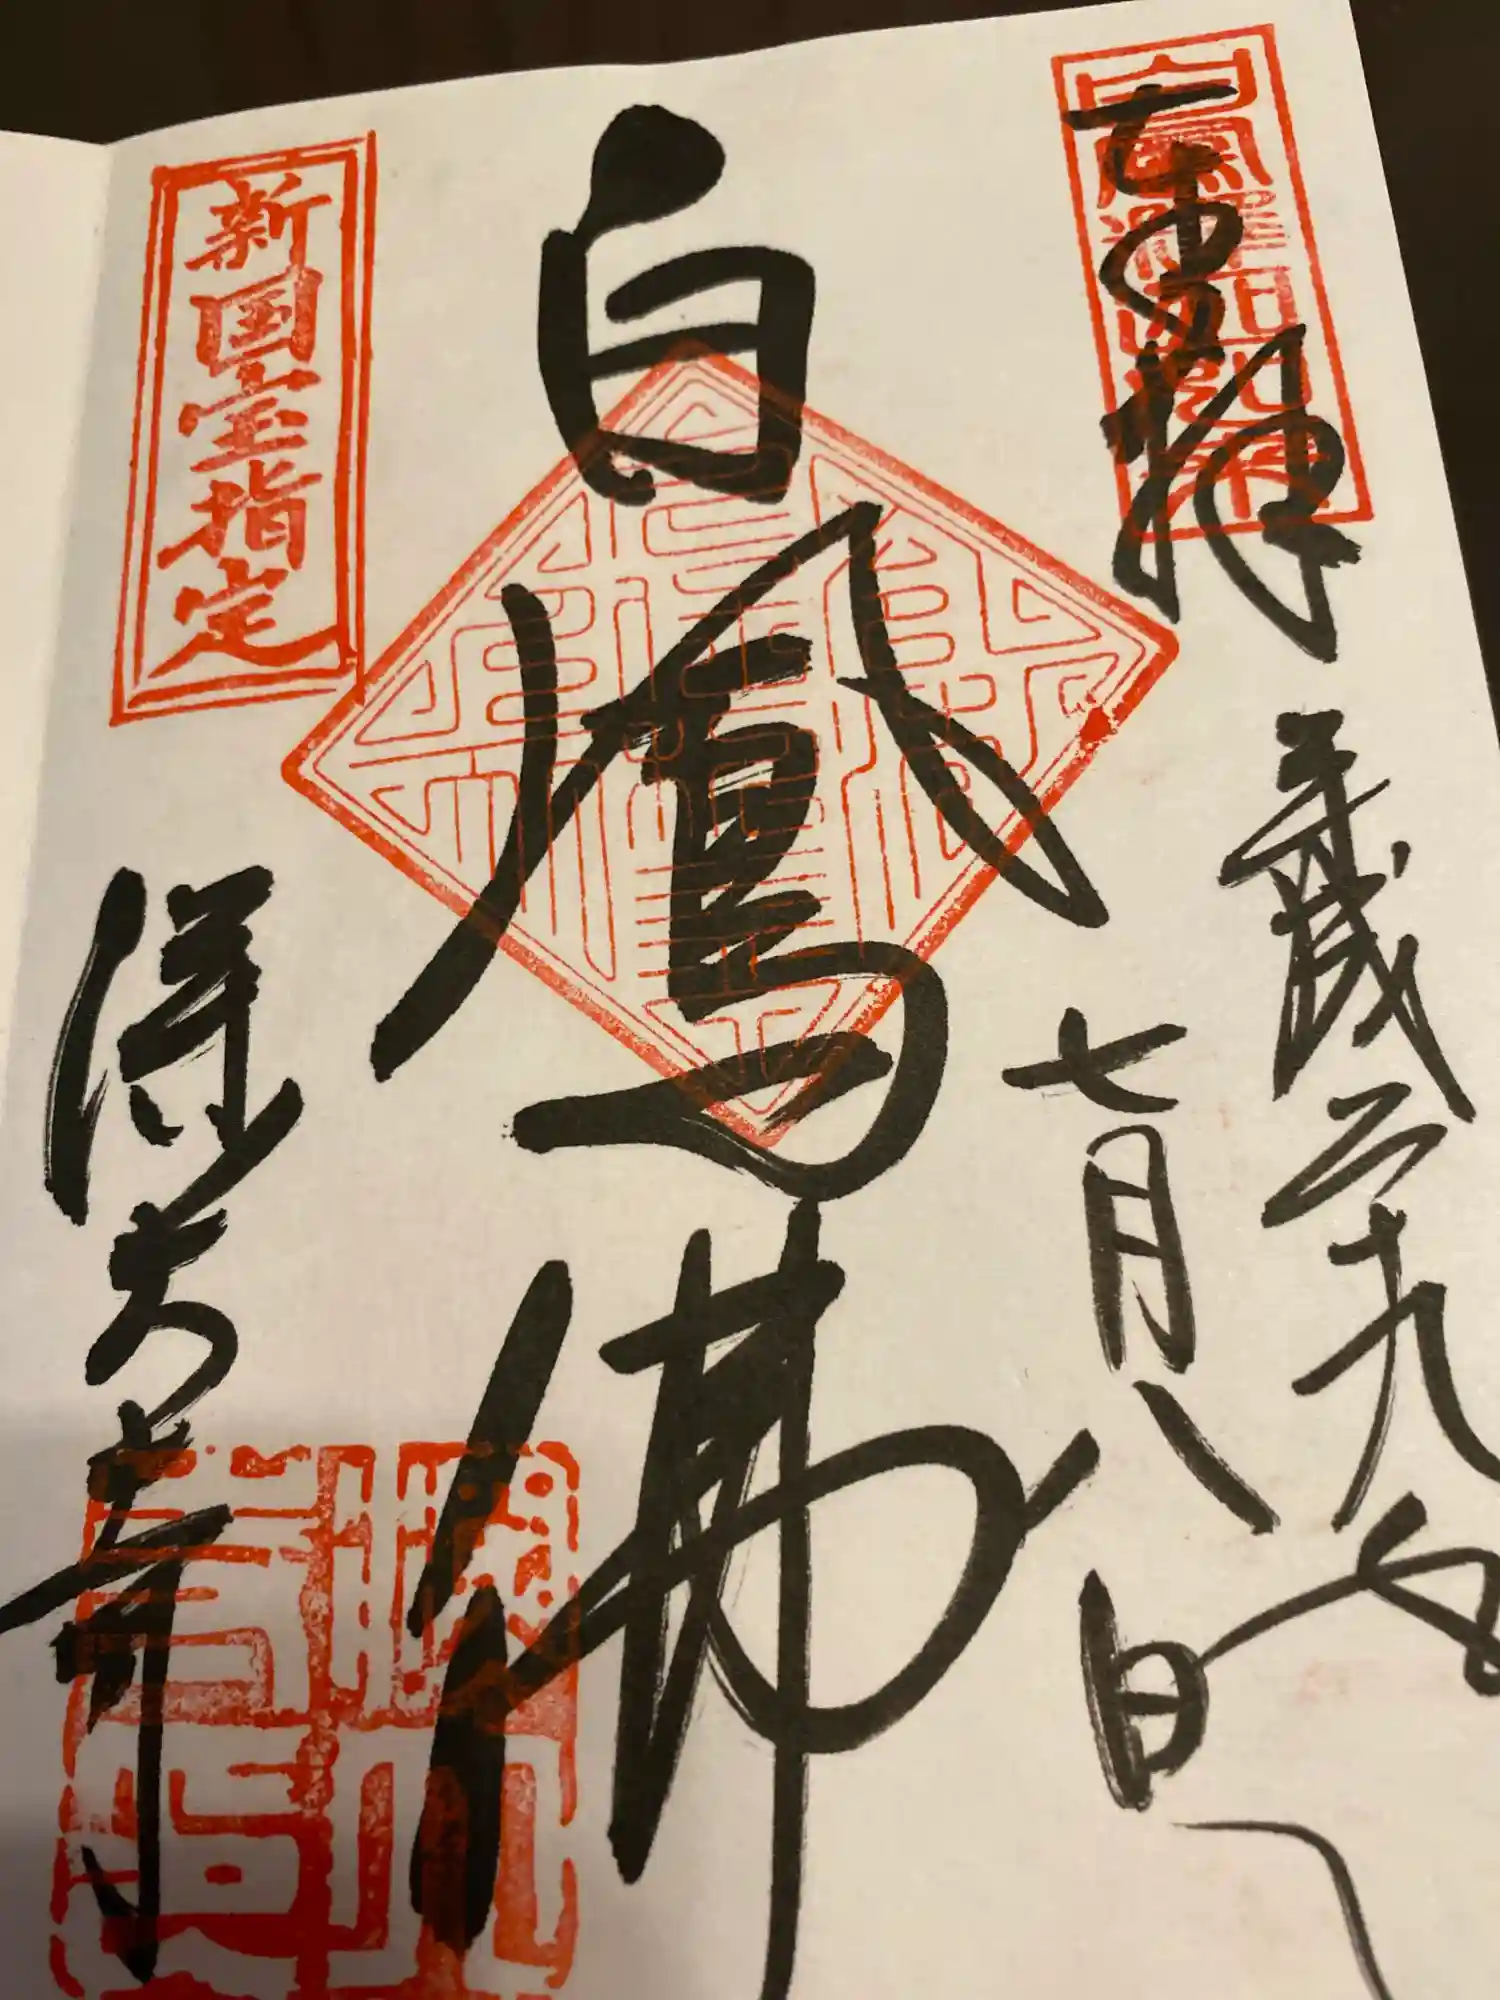 奉拝
平成二十九年
七月八日
白鳳佛
新国宝指定
深大寺